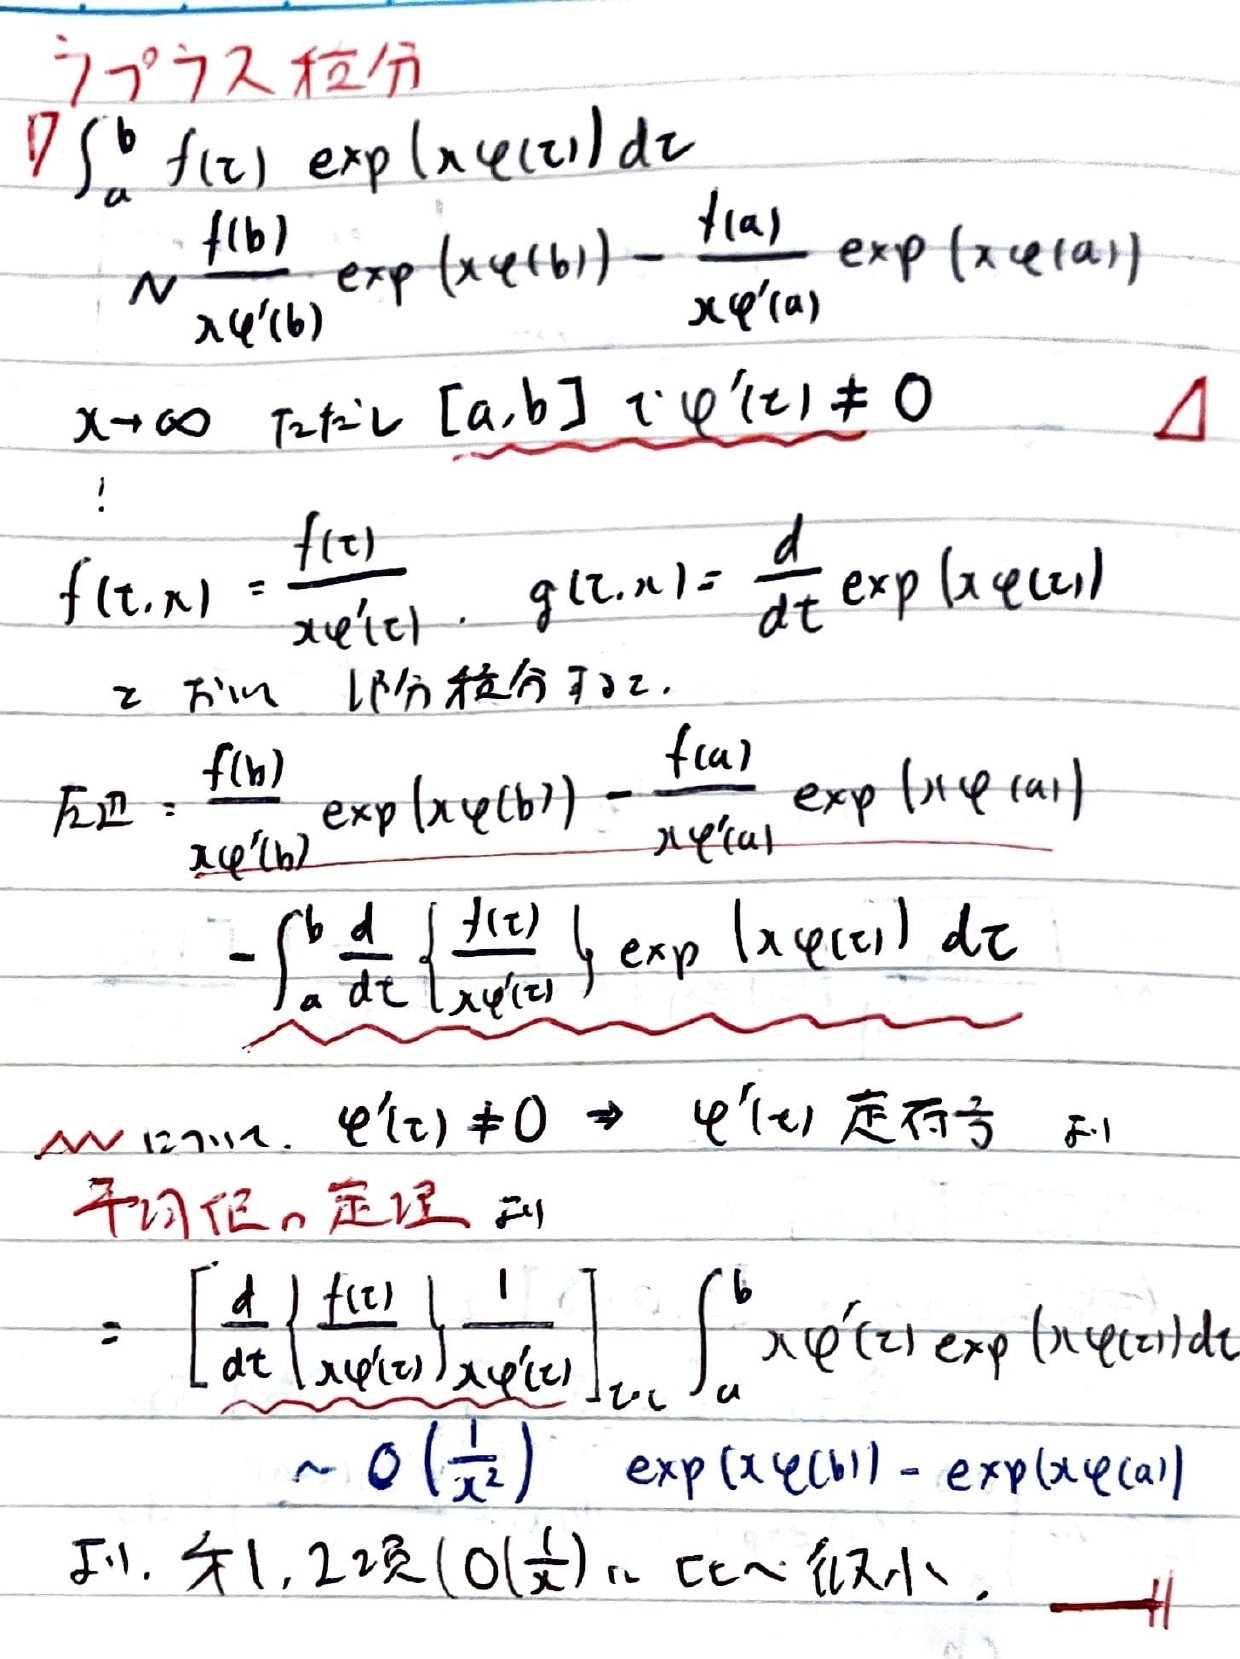 ラプラス積分
▷ ∫_a^b f(t) exp(xφ(t)) dt
~ f(b)/xφ'(b) exp(xφ(b)) − f(a)/xφ'(a) exp(xφ(a))
x→∞ ただし [a,b] で φ'(t) ≠ 0 ◁
f(t,x) = f(t)/xφ'(t) . g(t,x) = d/dt exp(xφ(t))
とおいて 部分積分すると.
左辺 = f(b)/xφ'(b) exp(xφ(b)) − f(a)/xφ'(a) exp(xφ(a))
− ∫_a^b d/dt { f(t)/xφ'(t) } exp(xφ(t)) dt
について. φ'(t) ≠ 0 ⇒ φ'(t) 定符号 より
平均値の定理 より
= [ d/dt { f(t)/xφ'(t) } 1/xφ'(t) ]_{t=c} ∫_a^b xφ'(t) exp(xφ(t)) dt
~ O(1/x²) exp(xφ(b)) − exp(xφ(a))
より. 第1, 2項 (O(1/x) に比べ 微小.